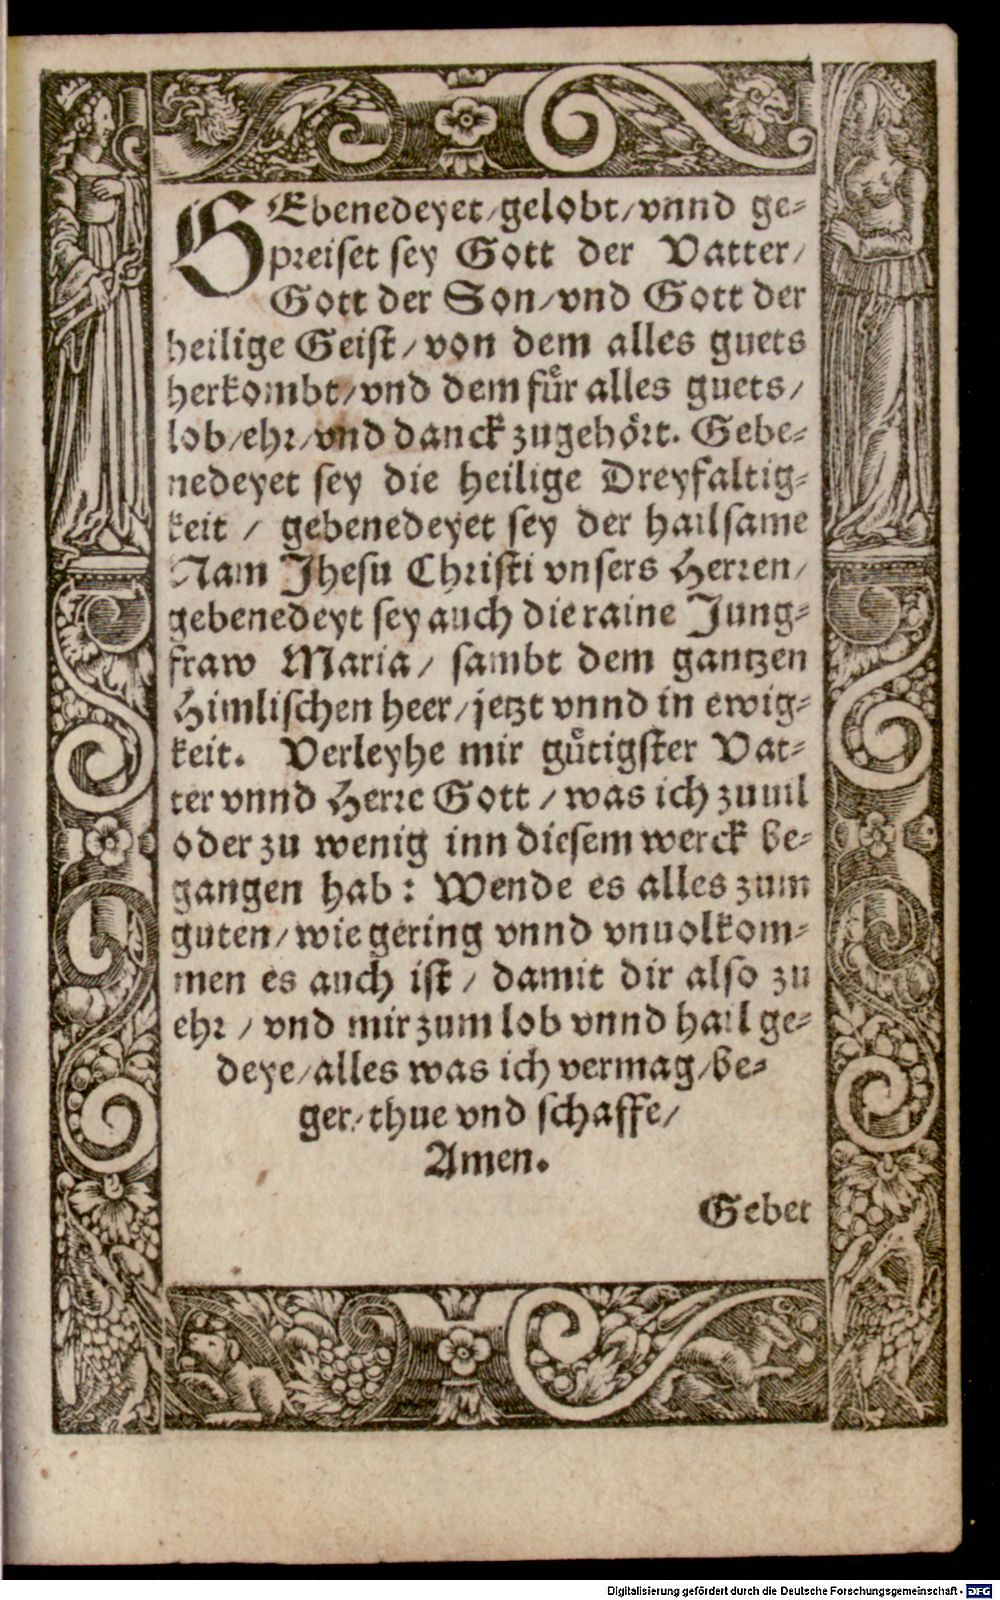 GEbenedeyet/gelobt/vnnd ge-
preiset sey Gott der Vatter/
Gott der Son/vnd Gott der
heilige Geist/von dem alles guets
herkombt/vnd dem fuͤr alles guets/
lob/ehr/vnd danck zugehoͤrt. Gebe-
nedeyet sey die heilige Dreyfaltig-
keit / gebenedeyet sey der hailsame
Nam Jhesu Christi vnsers Herren/
gebenedeyt sey auch die raine Jung-
fraw Maria/ sambt dem gantzen
Himlischen heer/jetzt vnnd in ewig-
keit. Verleyhe mir guͤtigster Vat-
ter vnnd Herre Gott / was ich zuuil
oder zu wenig inn diesem werck be-
gangen hab: Wende es alles zum
guten/wie gering vnnd vnuolkom-
men es auch ist / damit dir also zu
ehr / vnd mir zum lob vnnd hail ge-
deye/alles was ich vermag/be-
ger/thue vnd schaffe/
Amen.
Gebet
Digitalisierung gefördert durch die Deutsche Forschungsgemeinschaft - DFG